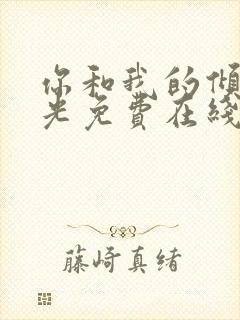 你和我的倾
光免費在綫
藤崎真绪